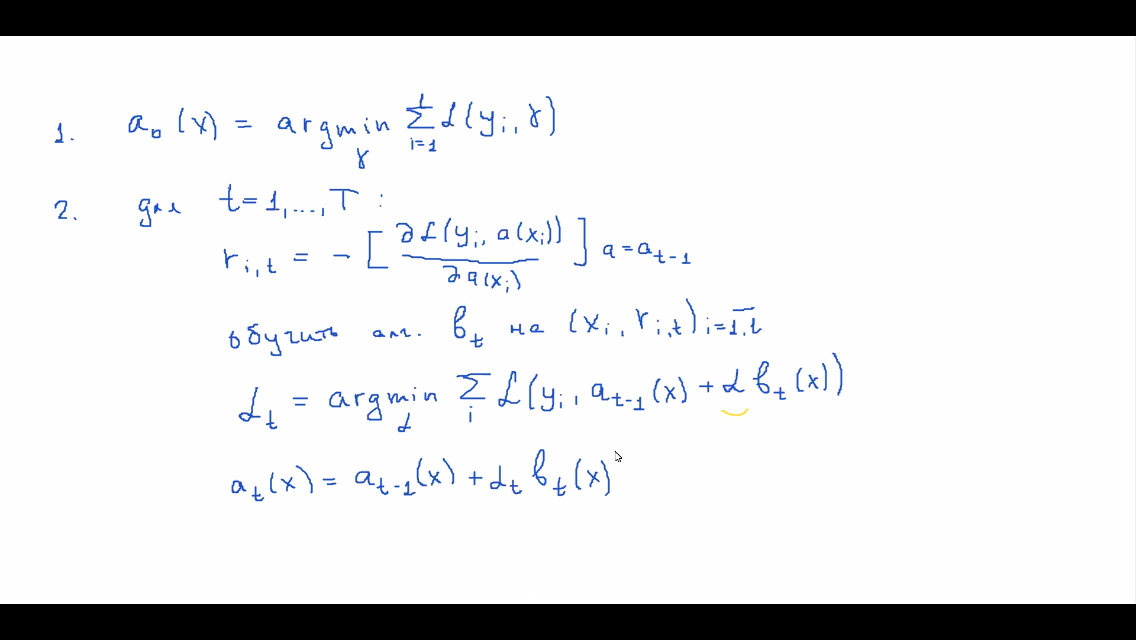 1. a₀(x) = argmin_γ ∑_{i=1}^{l} ℒ(yᵢ, γ)
2. для t=1,...,T :
r_{i,t} = - [ ∂ℒ(yᵢ, a(xᵢ)) / ∂a(xᵢ) ] a=a_{t-1}
обучить алг. b_t на (xᵢ, r_{i,t}) i=\overline{1,l}
α_t = argmin_α ∑_i ℒ(yᵢ, a_{t-1}(x) + α b_t(x))
a_t(x) = a_{t-1}(x) + α_t b_t(x)